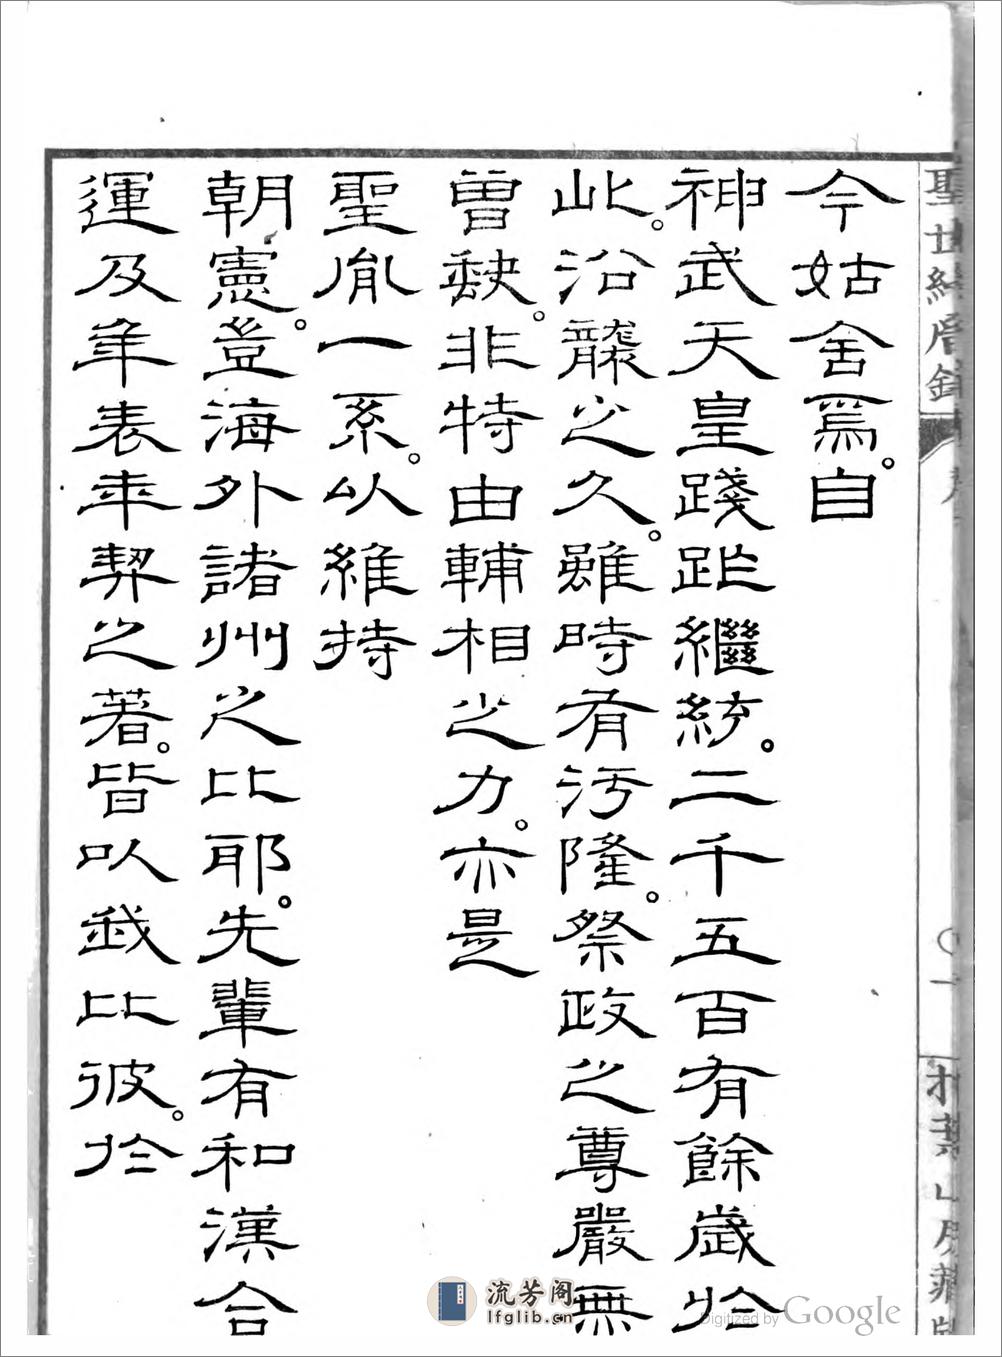 今姑舍焉。自
神武天皇踐阼繼統。二千五百有餘歲於
此。沿襲之久。雖時有汚隆。祭政之尊嚴無
曾缺。非特由輔相之力。亦是
聖胤一系。以維持
朝憲。豈海外諸州之比耶。先輩有和漢合
運及年表年契之著。皆以我比彼。於
流芳阁
lfglib.cn
Digitized by Google